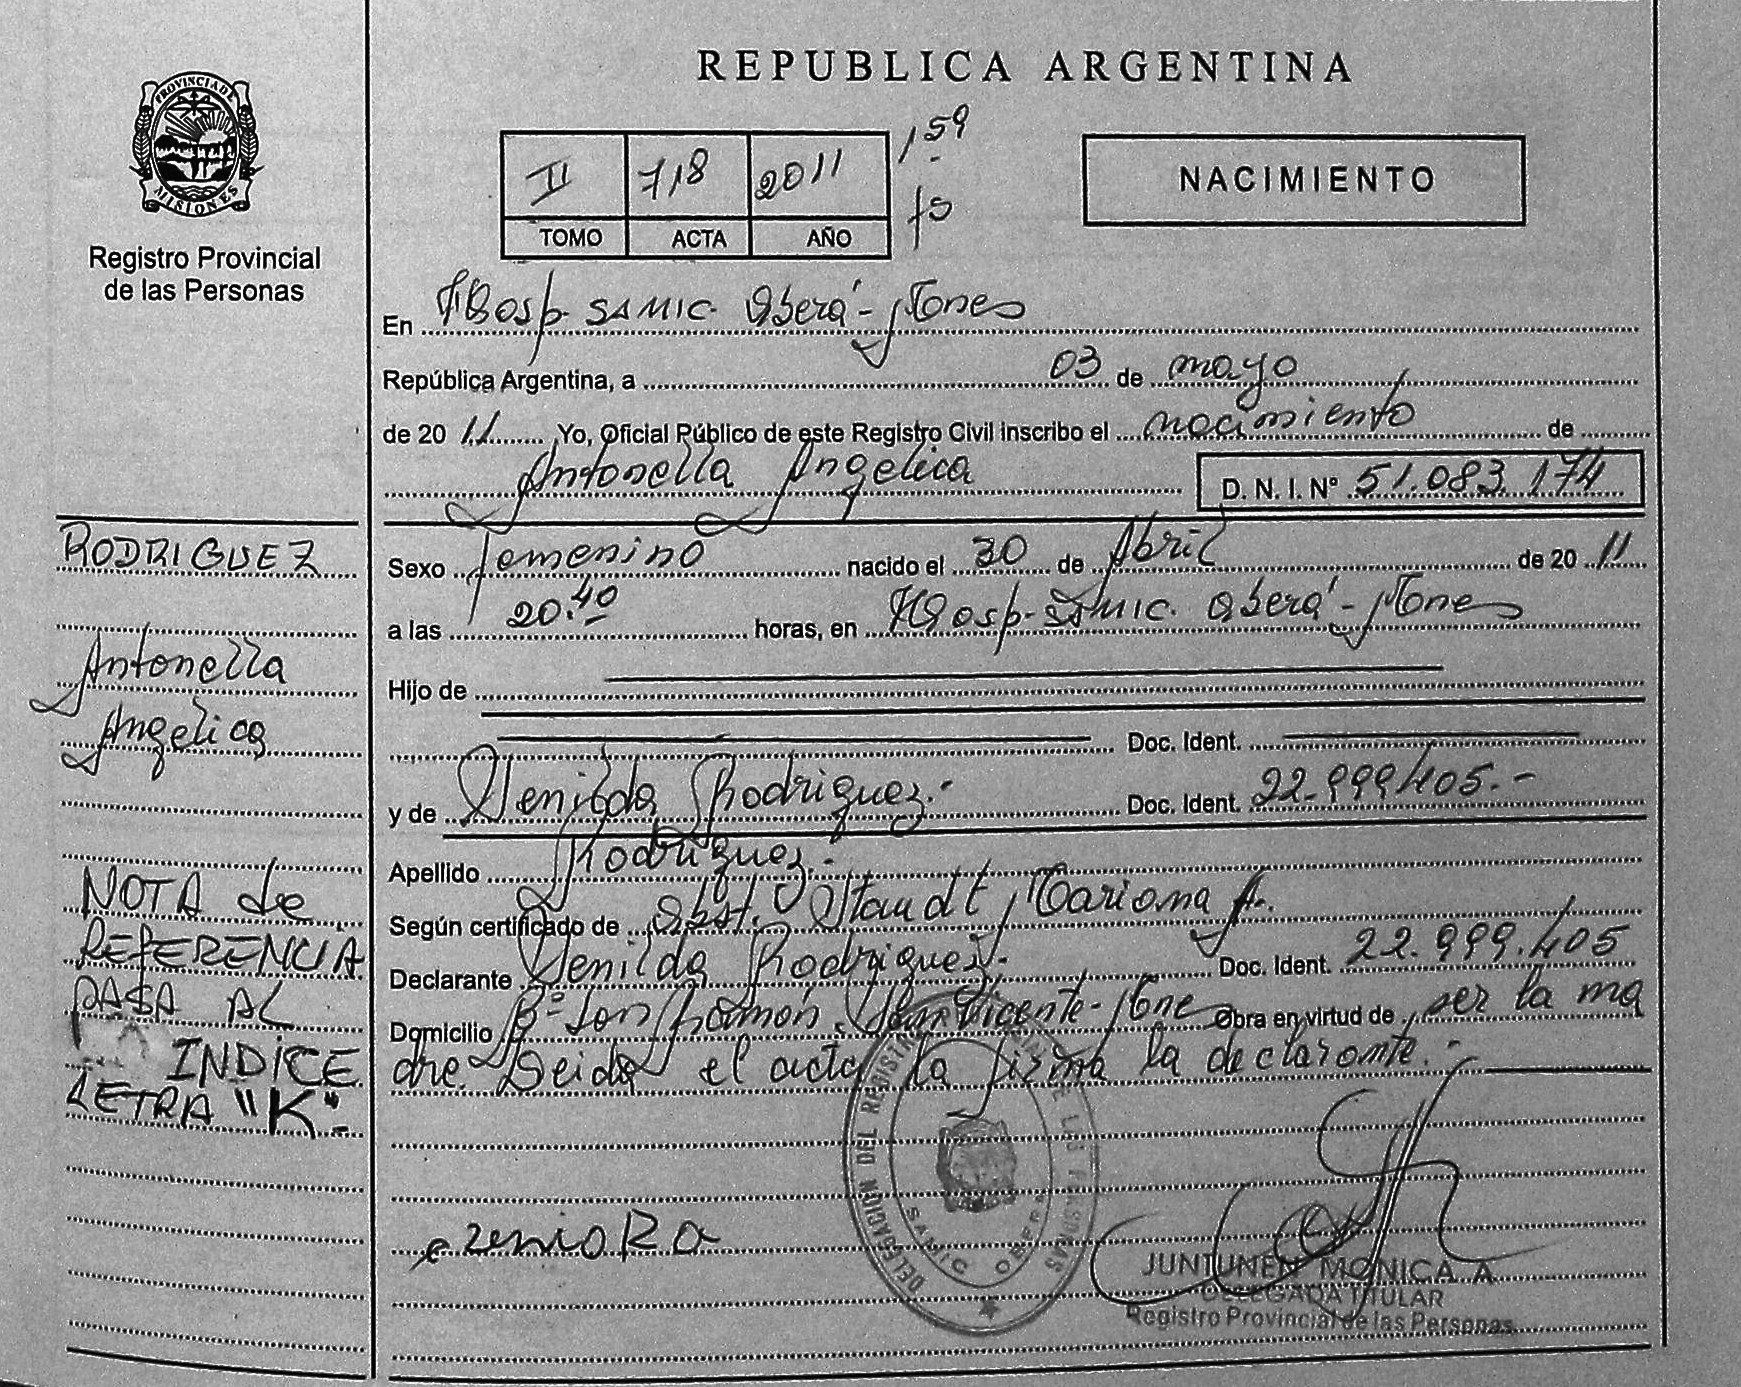 PROVINCIA DE
MISIONES
Registro Provincial
de las Personas
REPUBLICA ARGENTINA
II 718 2011 159
TOMO ACTA AÑO fs
NACIMIENTO
En Hosp. SAMIC. Oberá - Mones
República Argentina, a 03 de mayo
de 20 11 Yo, Oficial Público de este Registro Civil inscribo el nacimiento de
Antonella Angelica D. N. I. Nº 51.083.174
Sexo femenino nacido el 30 de Abril de 20 11
a las 20.40 horas, en Hosp. SAMIC. Oberá - Mones
Hijo de
Doc. Ident.
y de Rodriguez.- Doc. Ident. 22.999.405.-
Apellido Rodriguez.-
Según certificado de Obst. Staudt Mariana A.
Declarante Rodriguez.- Doc. Ident. 22.999.405
Domicilio Bº San Ramón, San Vicente - Mones Obra en virtud de ser la ma
dre. Leida el acta la firma la declarante.-
RODRIGUEZ
Antonella
Angelica
NOTA de
REFERENCIA
PASA AL
INDICE
LETRA "K".-
DELEGACION DEL REGISTRO DE LAS PERSONAS
SAMIC OBERA
JUNTUNEN MONICA A.
DELEGADA TITULAR
Registro Provincial de las Personas